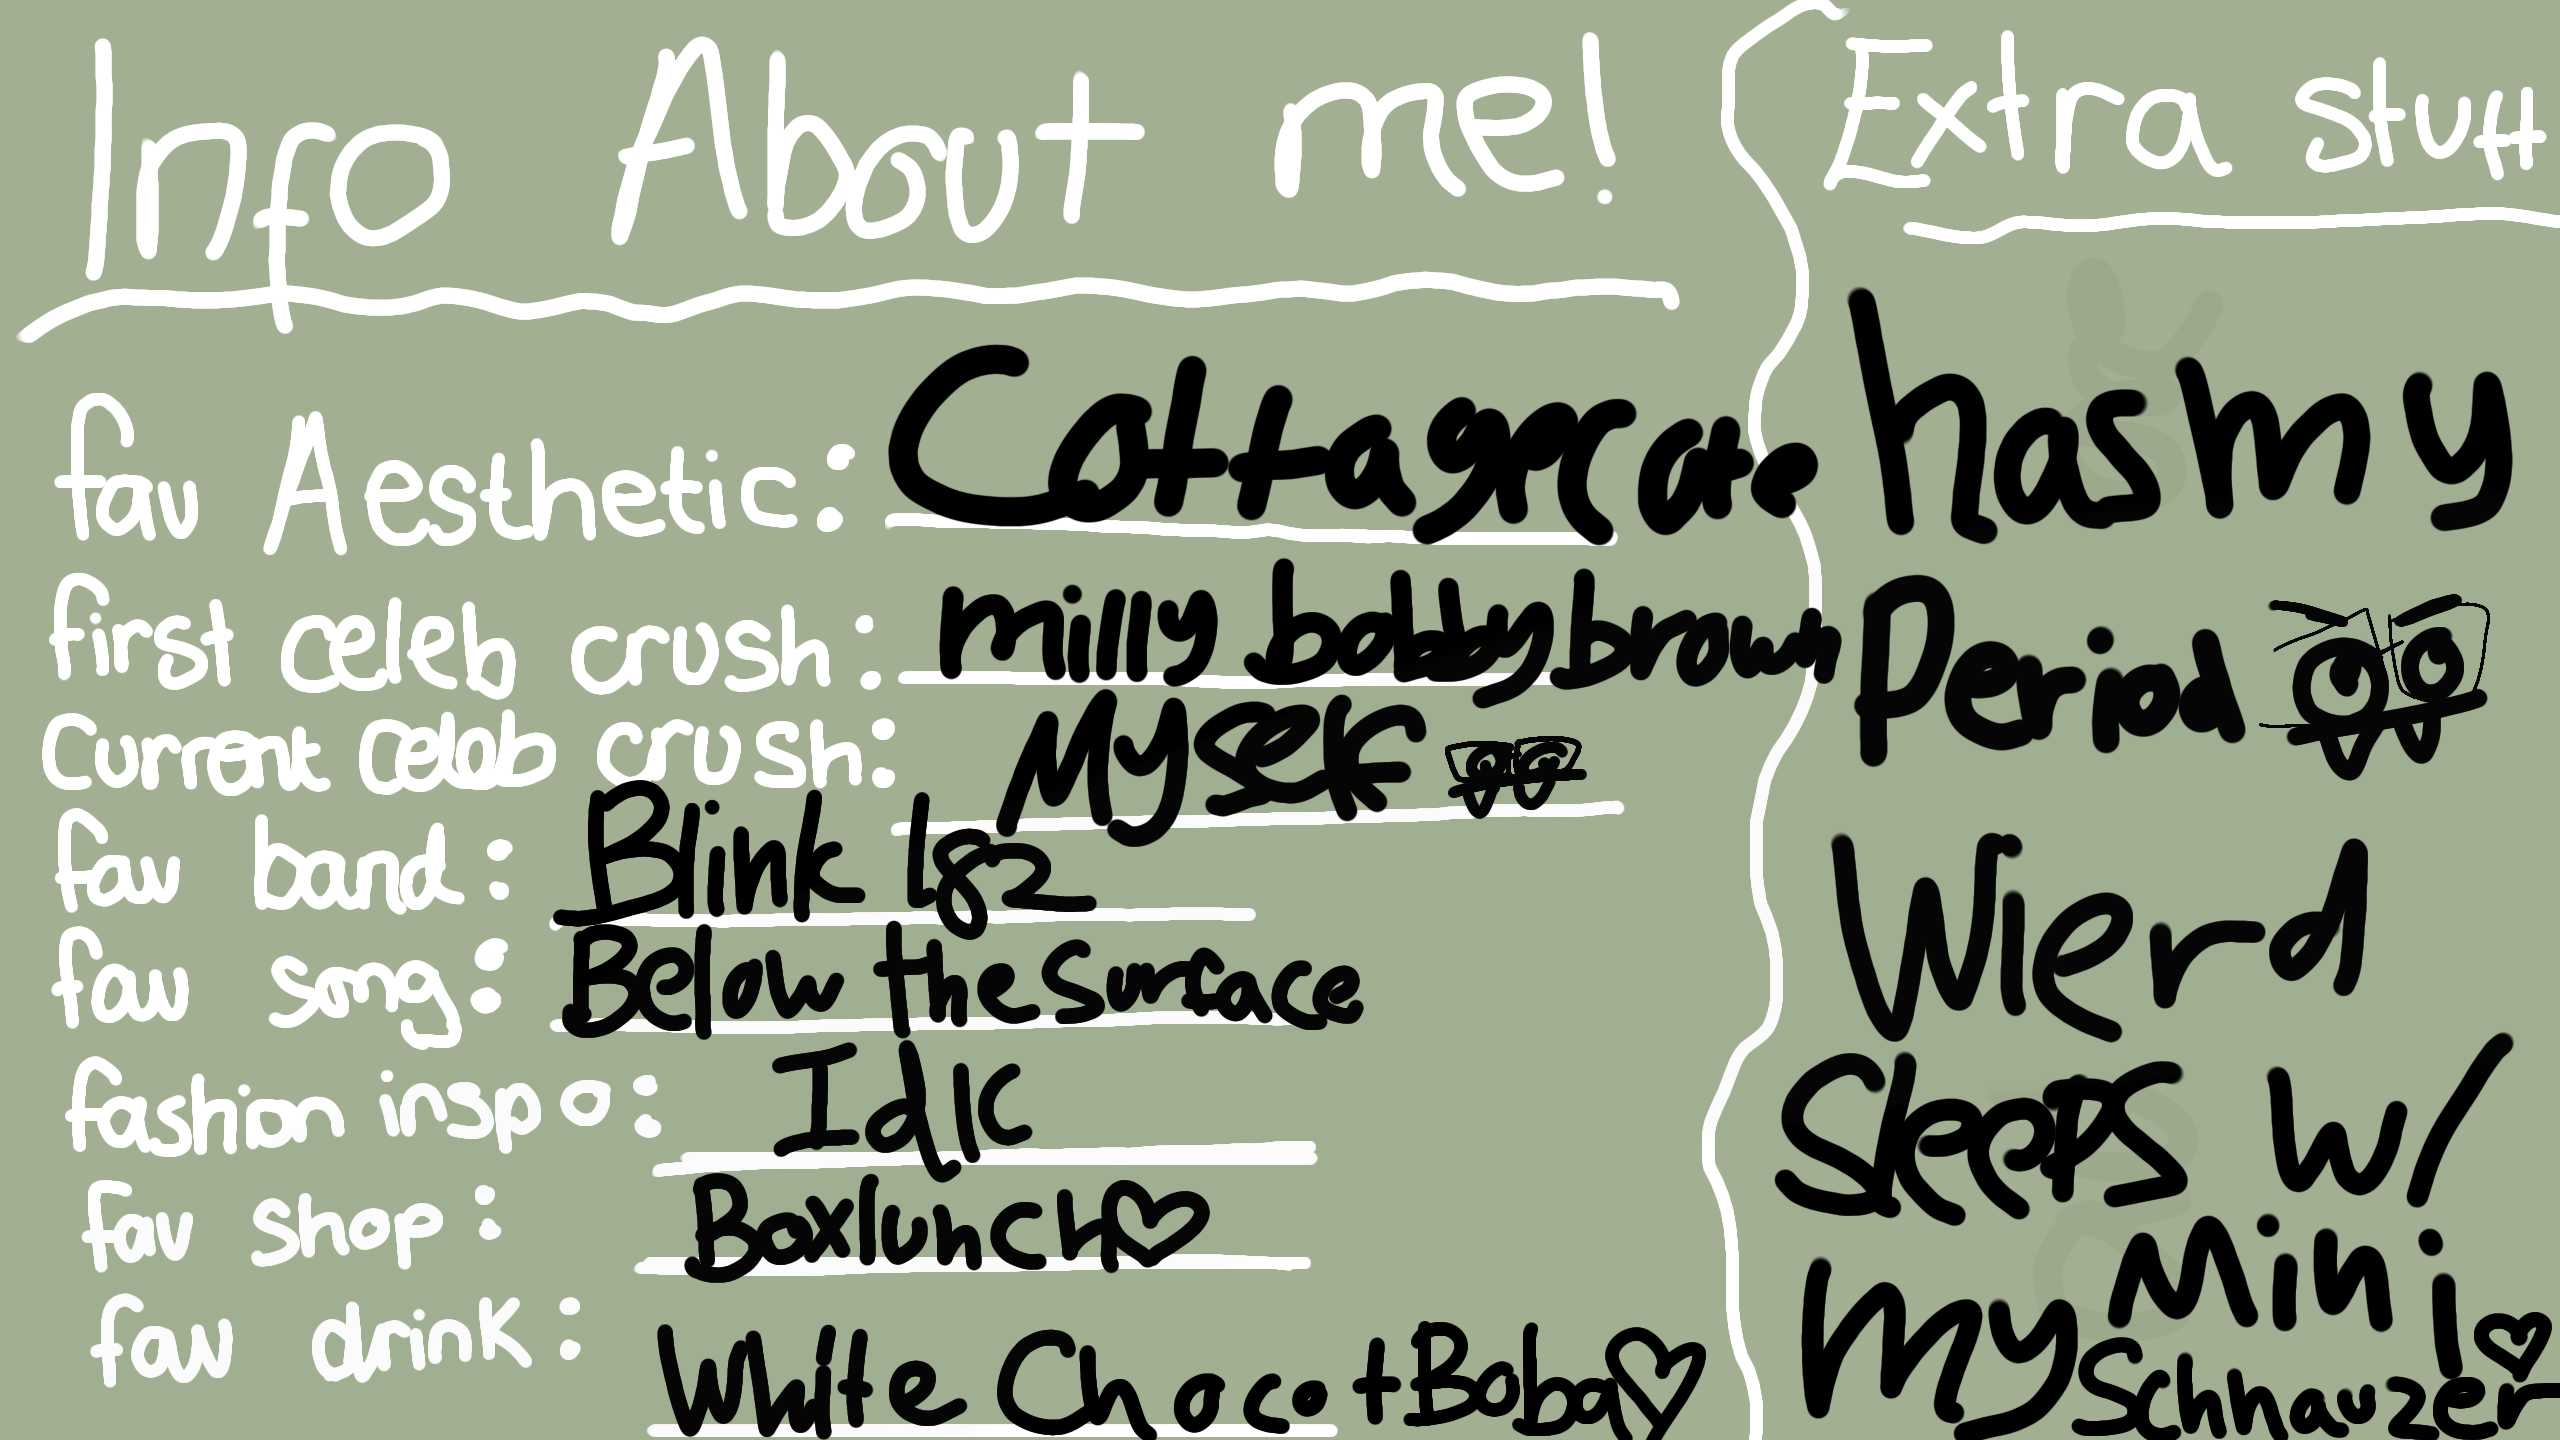 Info About me!
fav Aesthetic: Cottagecore
first celeb crush: milly bobby brown
Current celeb crush: Myself
fav band: Blink 182
fav song: Below the surface
fashion inspo: Idk
fav shop: Boxlunch♡
fav drink: White Choco + Boba♡
Extra stuff
has my
Period
Wierd
Sleeps w/
my Mini
Schnauzer!♡